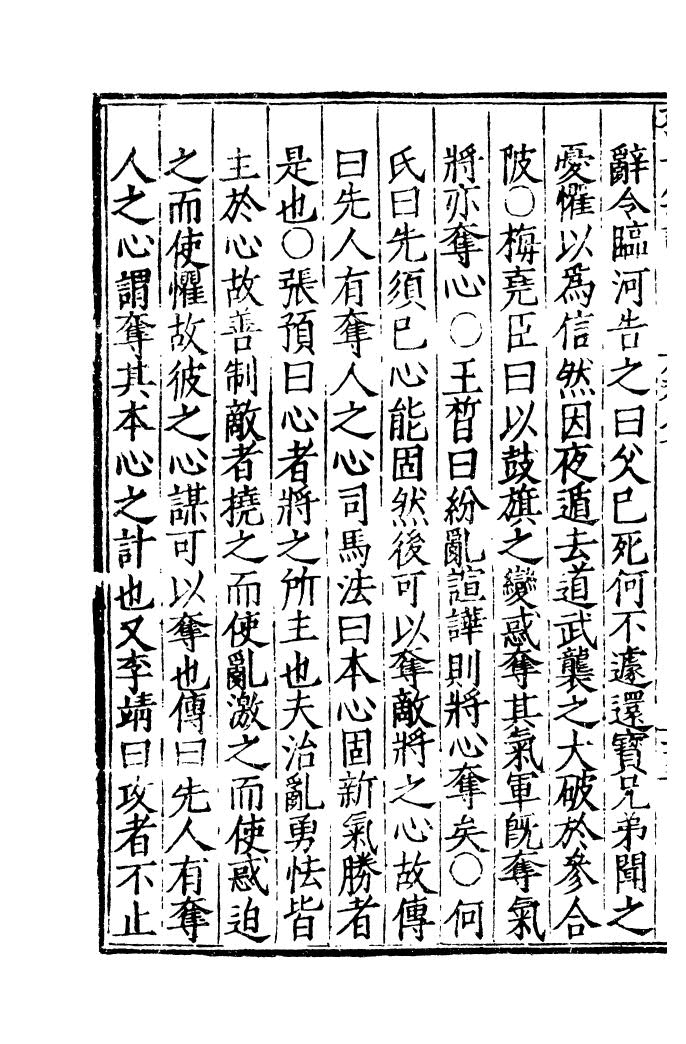 辭令臨河告之曰父巳死何不遽還寶兄弟聞之
憂懼以為信然因夜遁去道武襲之大破於參合
陂○梅堯臣曰以鼓旗之變惑奪其氣軍旣奪氣
將亦奪心○王晳曰紛亂諠譁則將心奪矣○何
氏曰先須巳心能固然後可以奪敵將之心故傳
曰先人有奪人之心司馬法曰本心固新氣勝者
是也○張預曰心者將之所主也夫治亂勇怯皆
主於心故善制敵者撓之而使亂激之而使惑迫
之而使懼故彼之心謀可以奪也傳曰先人有奪
人之心謂奪其本心之計也又李靖曰攻者不止